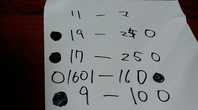 11 - 2
19 - 250
17 - 250
01601 - 160
9 - 100